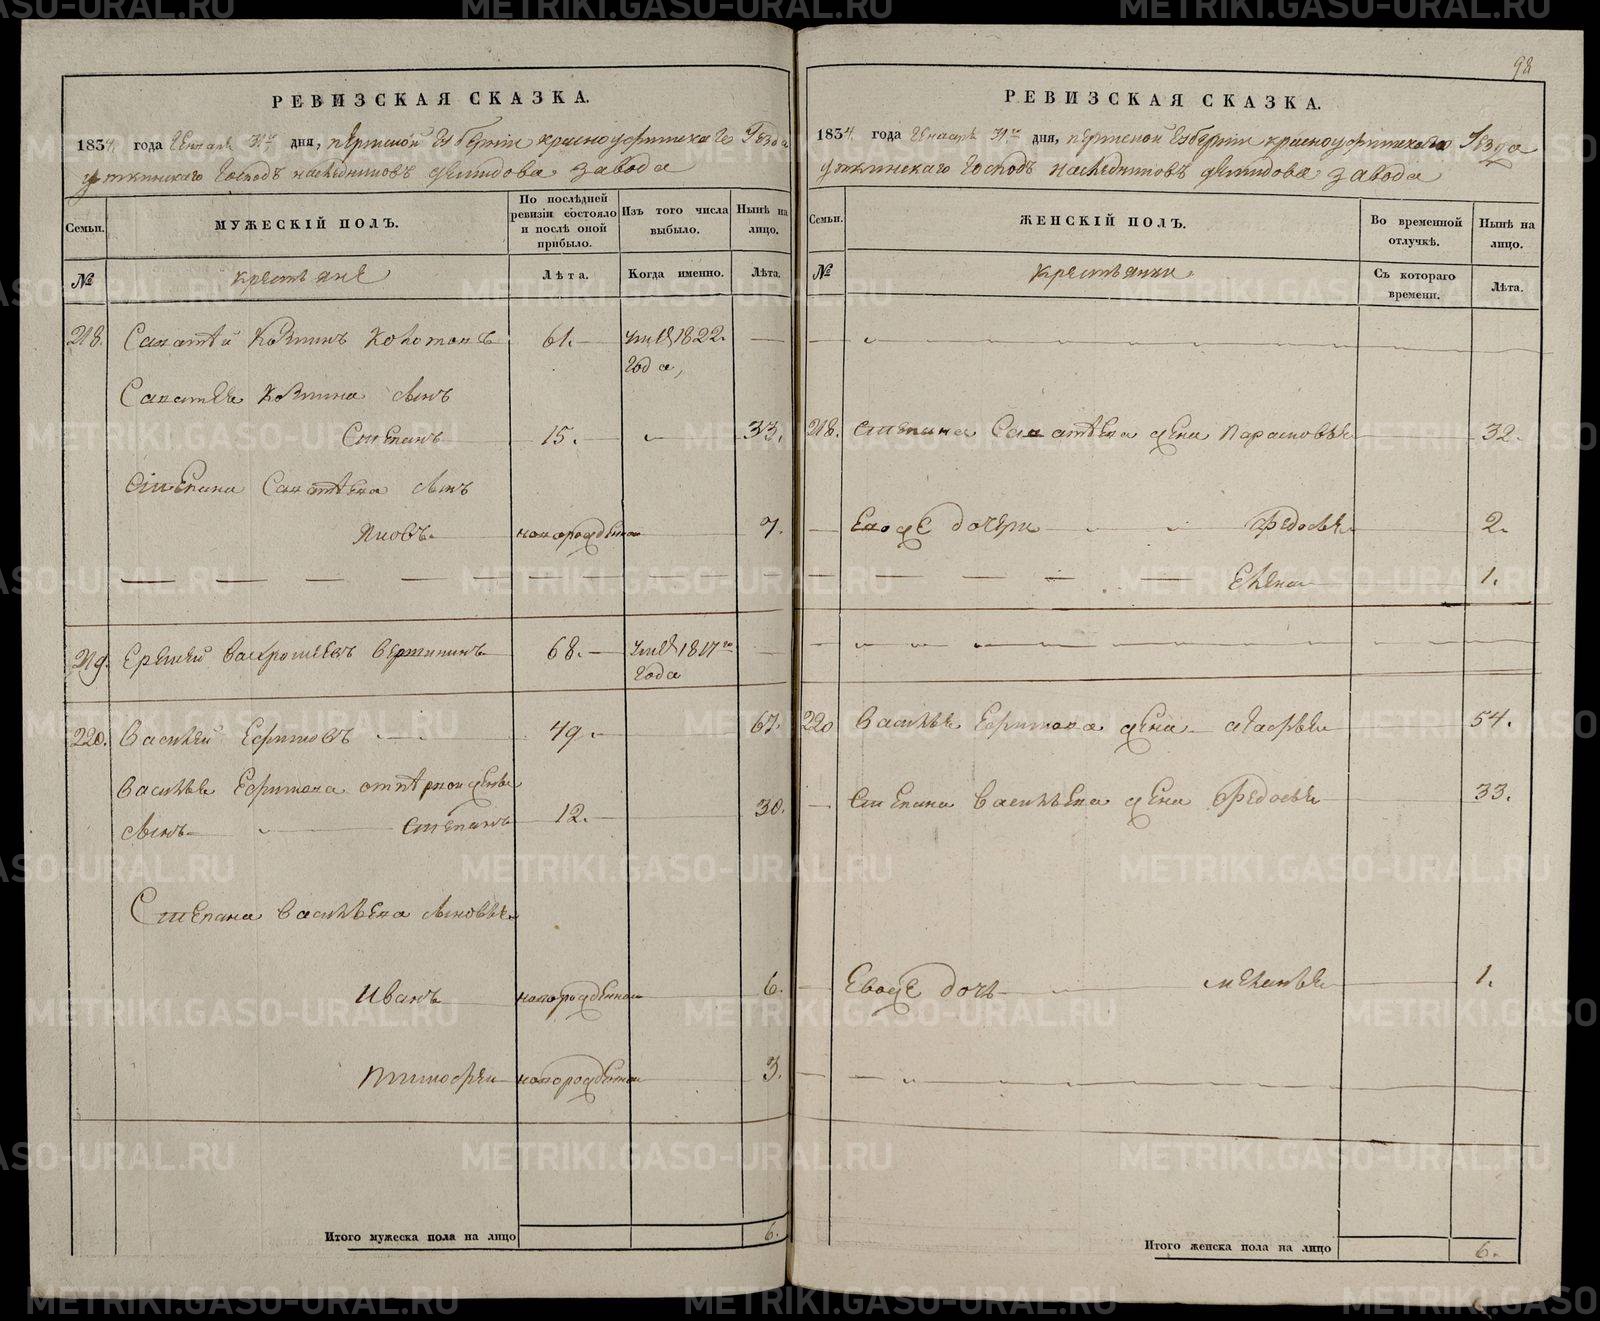 98
РЕВИЗСКАЯ СКАЗКА.
1834. года Генваря 31го дня, пермской Губернiи красноуфимскаго Уѣзда
уткинскаго Господъ наслѣдниковъ демидова завода
Семьи.
МУЖЕСКІЙ ПОЛЪ.
По послѣдней ревизіи состояло и послѣ оной прибыло.
Изъ того числа выбыло.
Нынѣ на лицо.
№
крестьяне
Лѣта.
Когда именно.
Лѣта.
218. Саватѣй Козминъ 61. умѣ 1822. года,
Саватѣя Козмина сынъ
Степанъ 15. 33.
Степана Саватѣева сынъ
Яковъ новорожденной 7.
219. Еремѣй 68. умѣ 1817го года
220. Василей Ефимовъ 49. 67.
Василья Ефимова отъ первой жены
сынъ Степанъ 12. 30.
Степана Васильева сыновья
Иванъ новорожденной 6.
Тимофеи новорожденной 3.
Итого мужеска пола на лицо 6.
РЕВИЗСКАЯ СКАЗКА.
1834. года Генваря 31го дня, пермской Губернiи красноуфимскаго Уѣзда
уткинскаго Господъ наслѣдниковъ демидова завода
Семьи.
ЖЕНСКІЙ ПОЛЪ.
Во временной отлучкѣ.
Нынѣ на лицо.
№
крестьянки
Съ котораго времени.
Лѣта.
218. Степана Саватѣева жена Парасковья 32.
Евоже дочери Федосья 2.
Елена 1.
220 Василья Ефимова жена 54.
Степана Васильева жена Федосья 33.
Евоже дочь меланья 1.
Итого женска пола на лицо 6.
METRIKI.GASO-URAL.RU